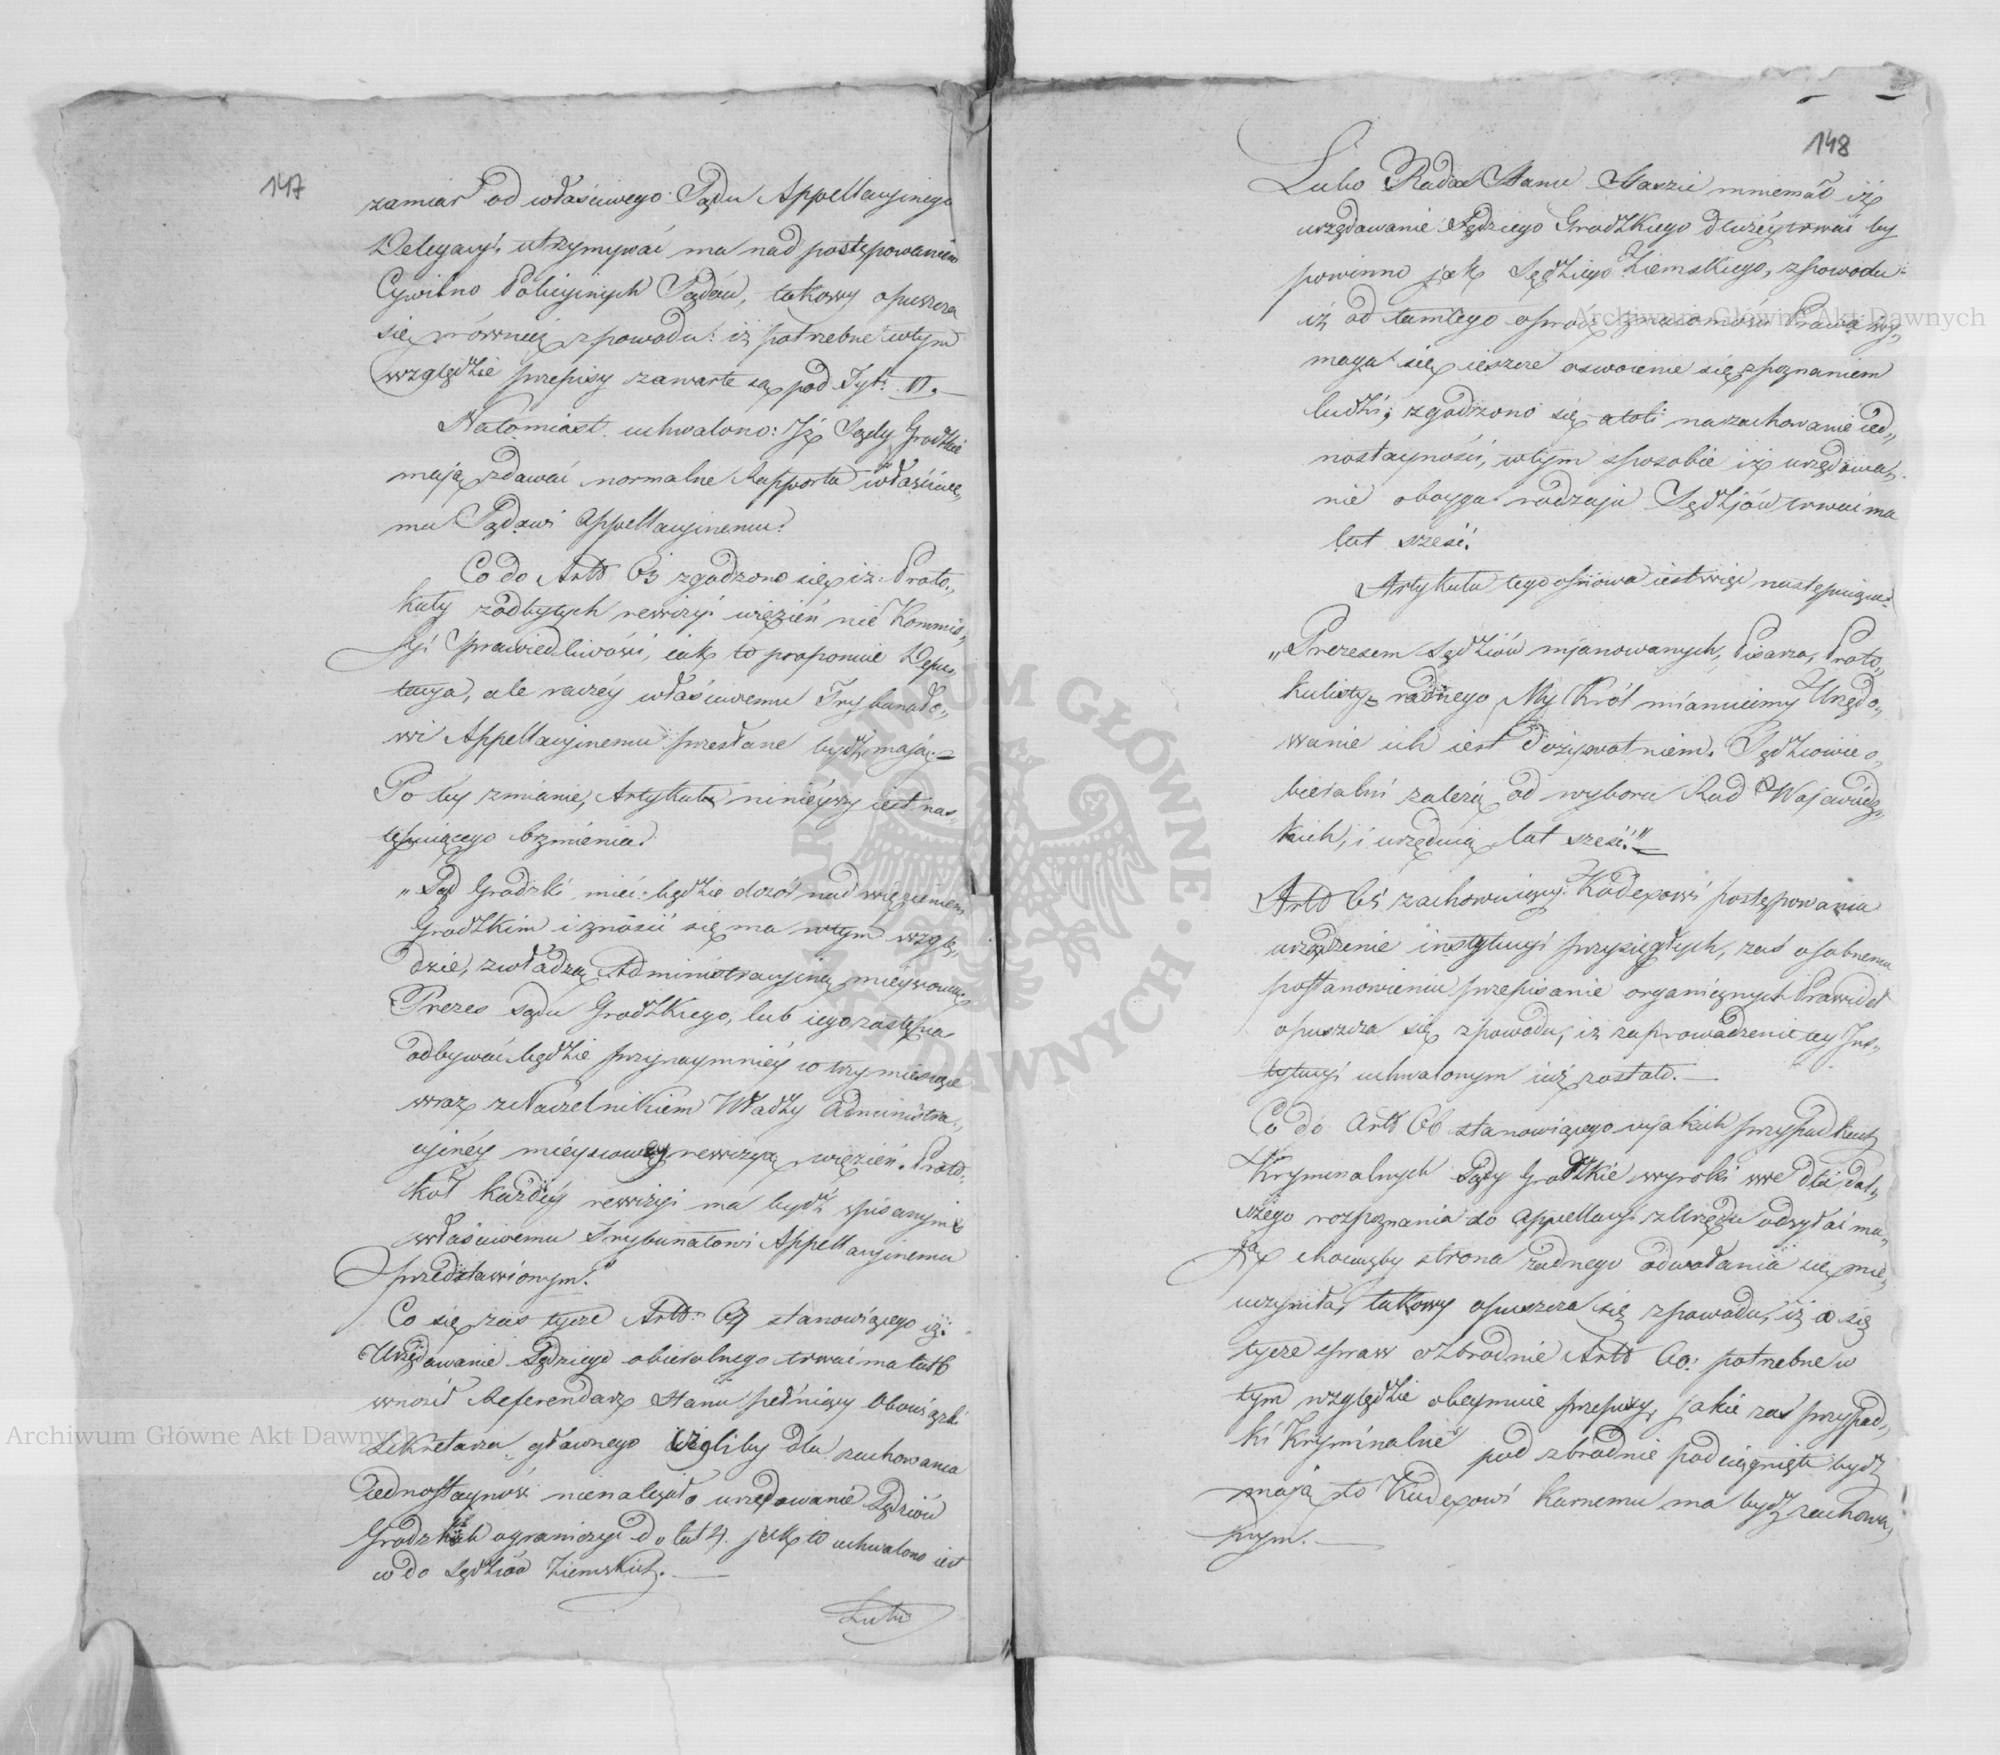 147
zamiar od właściwego Sądu Appellacyinego
Delegacyi utrzymywać ma nad postępowaniem
Cywilno Policyinych Sądów, takowy opuszcza
się równieiż z powodu: iż potrzebne w tym
względzie przepisy zawarte są pod Tyt: VI.—
Natomiast uchwalono: Iż Sądy Grodzkie
mają zdawać normalne Rapporta właściwe„
mu Sądowi Appellacyinemu.
Co do Artł 63 zgodzono się iż: Proto„
kuły z odbytych rewizyi więzień nie Kommis„
syi Sprawiedliwości, iak to proponuie Depu„
tacya, ale raczéy właściwemu Trybunało„
wi Appellacyinemu przesłane bydź maią.—
Po téy zmianie, Artykuł ninieyszy iest nas„
tępuiącego brzmienia.
„Sąd Grodzki mieć będzie dozór nad więzieniem
Grodzkim i znosić się ma w tym wzglę„
dzie, z władzą Administracyiną mieyscową
Prezes Sądu Grodzkiego, lub iego zastępca
odbywać będzie przynaymniéy co trzy miesiące
wraz z Naczelnikiem Władzy Administra„
cyinéy mieyscowéy rewizyą więzień. Proto„
kół każdéy rewizyi ma bydź spisanym i
właściwemu Trybunałowi Appellacyinemu
przedstawionym."
Co się zaś tycze Artł: 64 stanowiącego iż:
Urzędowanie Sędziego obieralnego trwać ma lat 6
wnosił Referendarz Stanu pełniący Obowiązki
Sekretarza głównego czyliby dla zachowania
Jednostayności nienależało urzędowanie Sędziów
Grodzkich ograniczyć do lat 4. jak to uchwalono iest
co do Sędziów Ziemskich.—
Lubo
148
Lubo Radca Stanu Staszic mniemał iż
urzędowanie Sędziego Grodzkiego dłużéy trwać by
powinno jak Sędziego Ziemskiego, z powodu
iż od tamtego oprócz znaiomości Prawa wy„
maga się ieszcze oswoienie się z poznaniem
ludzi; zgodzono się atoli na zachowanie ied„
nostayności, w tym sposobie iż urzędowa„
nie oboyga rodzaju Sędziów trwać ma
lat sześć.
Artykułu tego osnowa iest więc następuiąca:
„Prezesem Sędziów mianowanych, Pisarza, Proto„
kulisty Król mianuiemy Urzędo„
wanie ich iest dożywotniem. Sędziowie o„
bieralni zależą od wyboru Rad Wojewódz„
kich, i urzęduią lat sześć."—
Artł 65 zachowuiący Kodexowi postępowania
urządzenie instytucyi przysięgłych, zaś osobnemu
postanowieniu przepisanie organicznych Prawideł
opuszcza się z powodu, iż zaprowadzenie tey Ins„
tytucyi uchwalonym iuż zostało.—
Co do Artł 66 stanowiącego w jakich przypadkach
Kryminalnych Sądy Grodzkie wyroki swe dla dal„
szego rozpoznania do Appellacyi z Urzędu odsyłać ma„
ją choćiażby strona żadnego odwołania się nie„
uczyniła, takowy opuszcza się z powodu, iż co się
tycze spraw o Zbrodnie Artł 60: potrzebne w
tym względzie obeymuie przepisy, jakie zaś przypad„
ki Kryminalne pod zbrodnie podciągnięte bydź
mają to Kodexowi karnemu ma bydź zachowa„
nym.—
Archiwum Główne Akt Dawnych
Archiwum Główne Akt Dawnych
ARCHIWUM GŁÓWNE AKT DAWNYCH